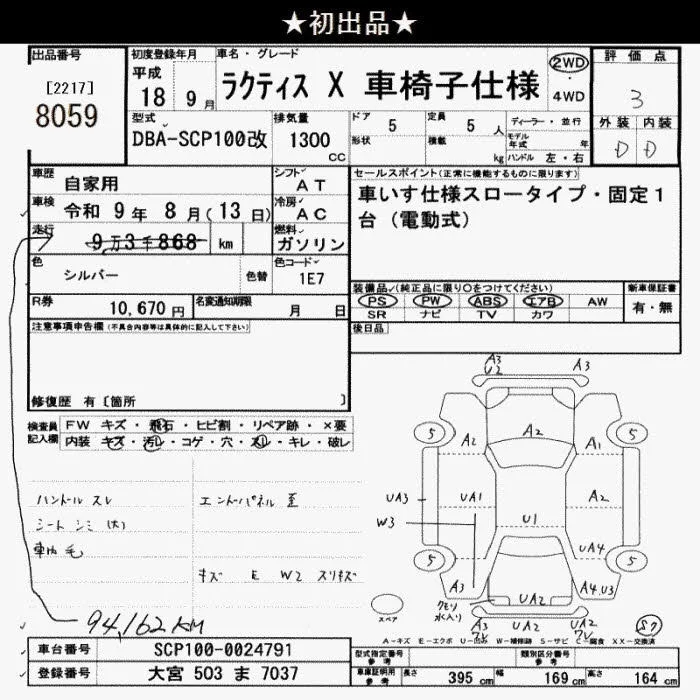 ★初出品★
出品番号
[2217]
8059
初度登録年月
平成
18 年 9 月
車名・グレード
ラクティス X 車椅子仕様
2WD
4WD
評価点
3
外装 内装
D D
型式
DBA-SCP100改
排気量
1300
CC
ドア 5
形状
定員 5 人
積載 kg
ディーラー・並行
モデル年式 年
ハンドル 左・右
車歴
自家用
シフト
AT
車検
令和 9年 8月(13日)
冷房
AC
走行
9万3千868 km
燃料
ガソリン
色
シルバー
色替
色コード
1E7
R券
10,670 円
名変通知期限
月 日
セールスポイント(正常に機能するものに限ります)
車いす仕様スロータイプ・固定1
台(電動式)
装備品(純正品に限り○をつけてください)
PS PW ABS エアB AW
SR ナビ TV カワ
新車保証書
有・無
後日品
注意事項申告欄(不具合内容等は具体的に記入して下さい)
修復歴 有〔箇所 〕
検査員
記入欄
FW キズ・飛石・ヒビ割・リペア跡・×要
内装 キズ・汚レ・コゲ・穴・スレ・キレ・破レ
ハンドル スレ
シート シミ (大)
車内 毛
エンドパネル 歪
キズ E W2 スリキズ
94,162 KM
A3
U2
A3
5
5
A2
A2
A1
UA3
UA1
A2
W3
U1
5
5
UA4
A3
A4.U3
クモリ
水入り
UA2
A3
UA2
UA2
スペア
S7
A-キズ E-エクボ U-凹み W-補修跡 S-サビ C-腐食 XX-交換済
車台番号
SCP100-0024791
登録番号
大宮 503 ま 7037
型式指定番号
参考
類別区分番号
参考
車庫証明用
参考
長さ 395 cm
幅 169 cm
高さ 164 cm